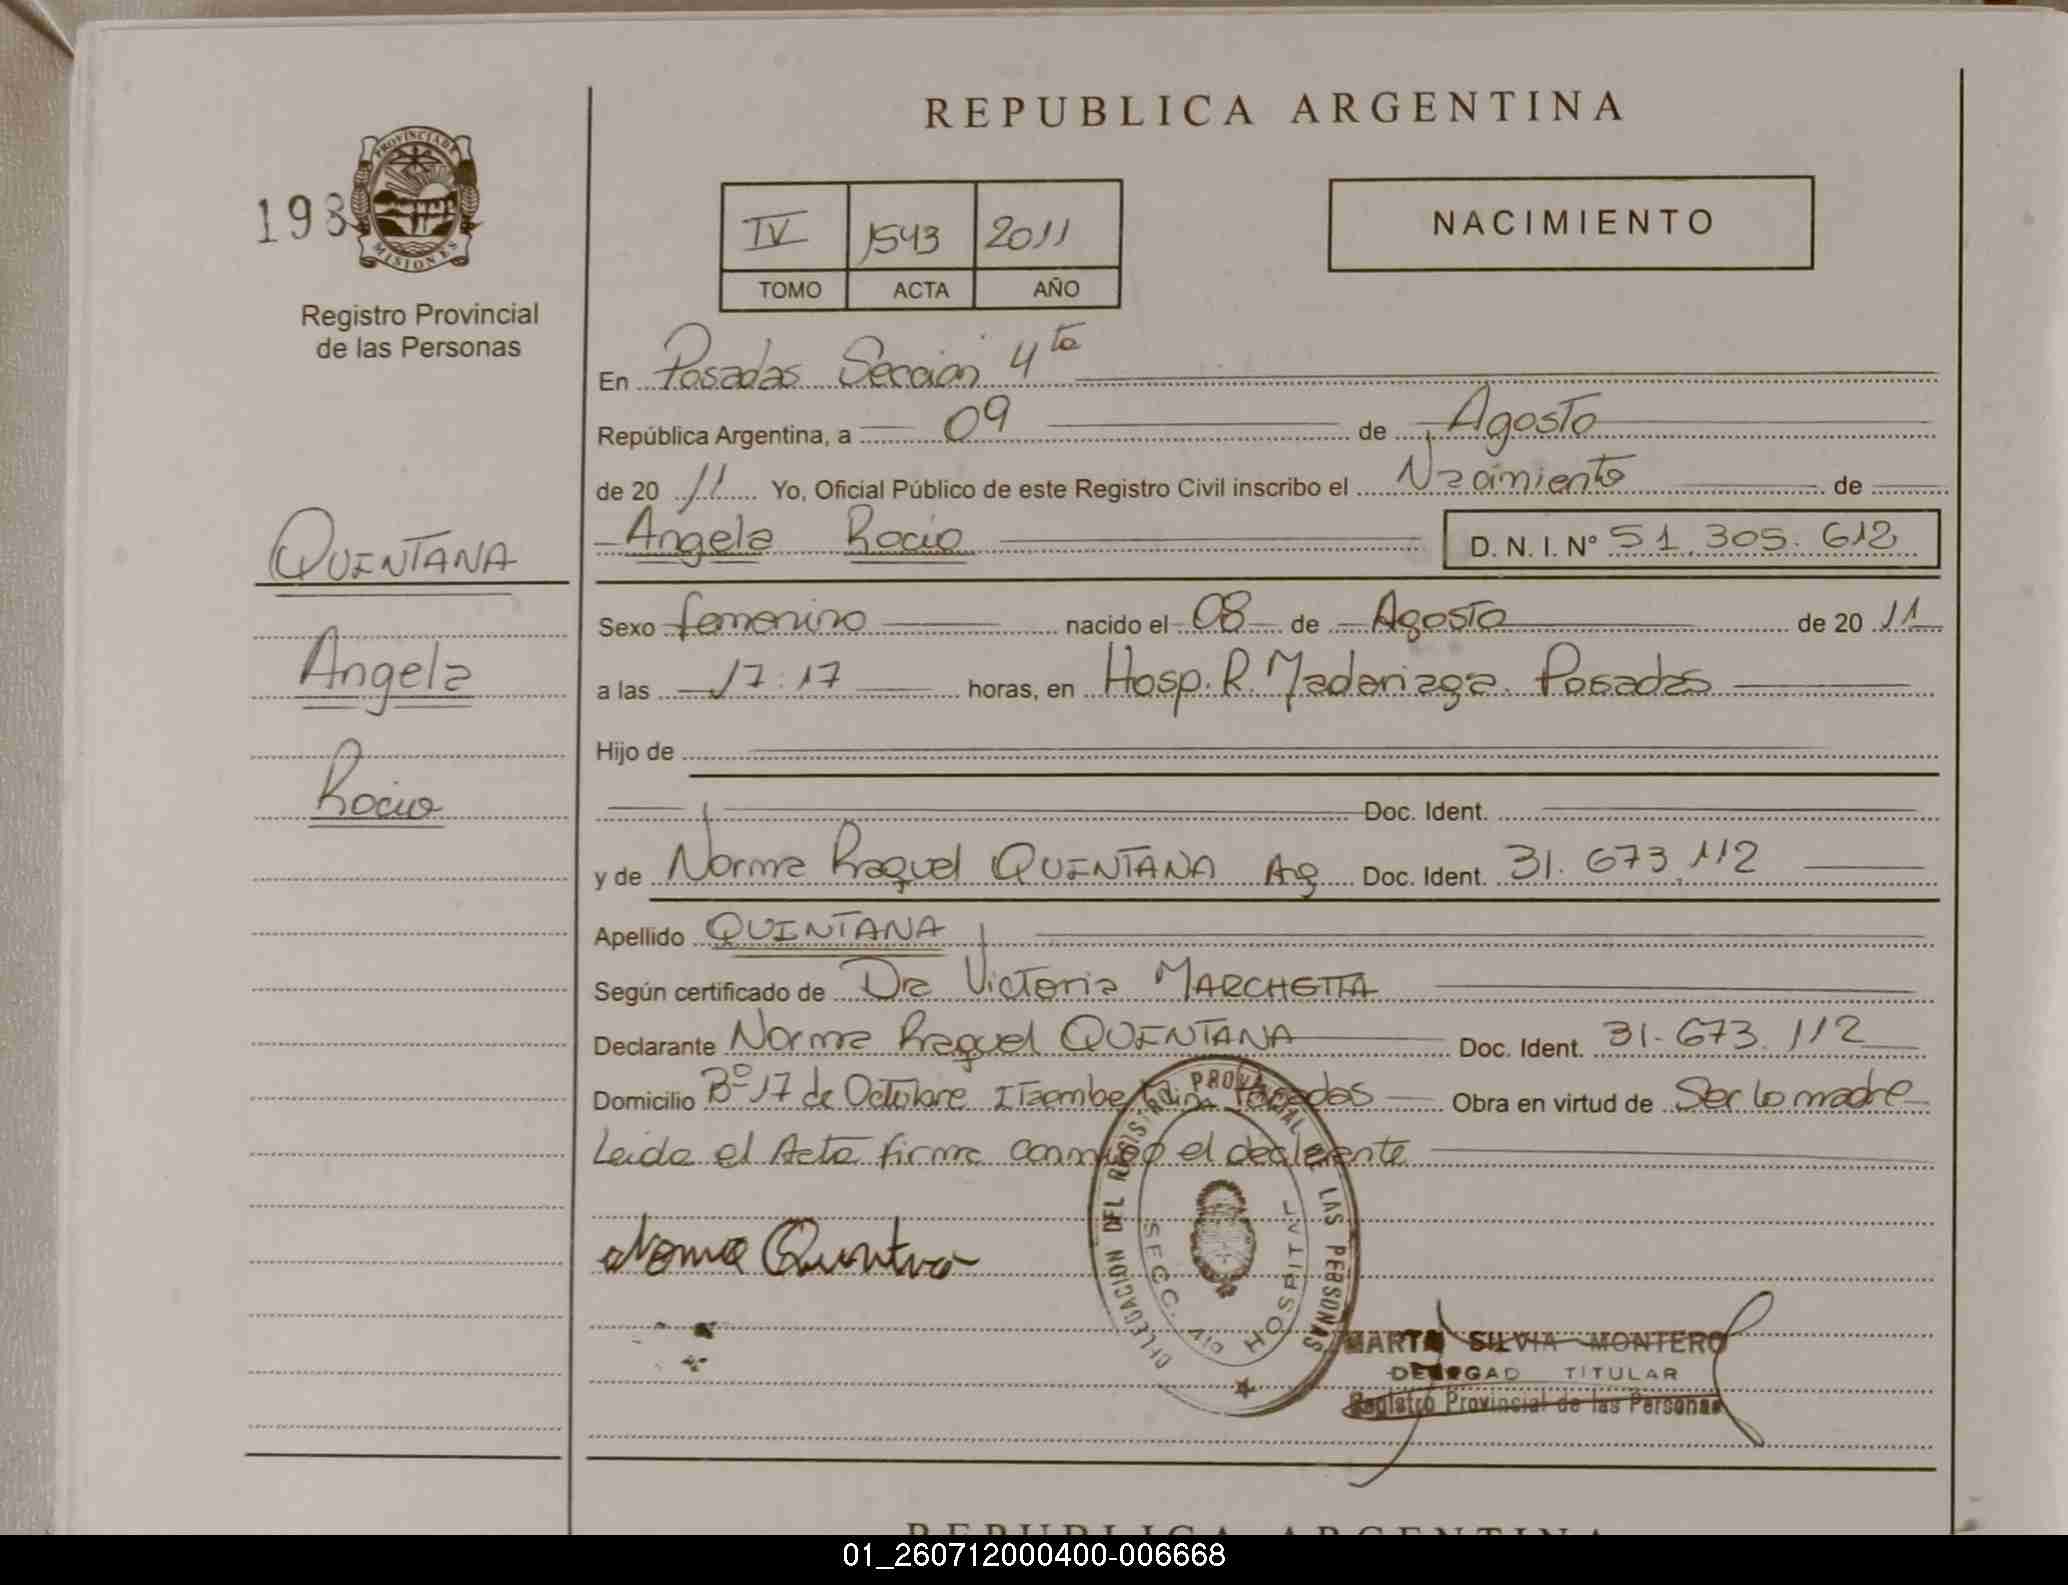 REPUBLICA ARGENTINA
198
PROVINCIA DE
MISIONES
Registro Provincial
de las Personas
IV 1543 2011
TOMO ACTA AÑO
NACIMIENTO
QUINTANA
Angela
Rocio
En Posadas Sección 4ta
República Argentina, a 09 de Agosto
de 20 11 Yo, Oficial Público de este Registro Civil inscribo el Nacimiento de
Angela Rocio D. N. I. N° 51.305.612
Sexo femenino nacido el 08 de Agosto de 20 11
a las 17:17 horas, en Hosp. R. Madariaga Posadas
Hijo de
Doc. Ident.
y de Norma Raquel QUINTANA Ag Doc. Ident. 31.673.112
Apellido QUINTANA
Según certificado de Dra Victoria MARCHETTA
Declarante Norma Raquel QUINTANA Doc. Ident. 31.673.112
Domicilio Bº 17 de Octubre Itaembe Posadas Obra en virtud de Ser la madre
Leida el Acta firma conmigo el declarante
DELEGACION DEL REGISTRO PROVINCIAL DE LAS PERSONAS
SECC. CIV HOSPITAL
Norma Quintana
MARTA SILVIA MONTERO
DELEGAD TITULAR
Registro Provincial de las Personas
REPUBLICA ARGENTINA
01_260712000400-006668